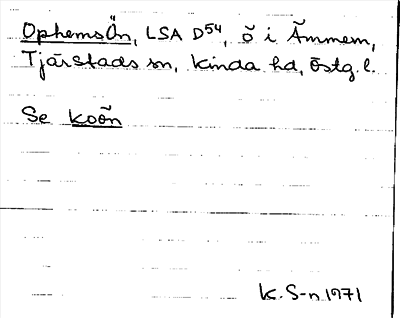 OphemsÖn, LSA D54, ö i Ämmern,
Tjärstads sn, Kinda hd, Östg. l.
Se koön
K. S-n 1971